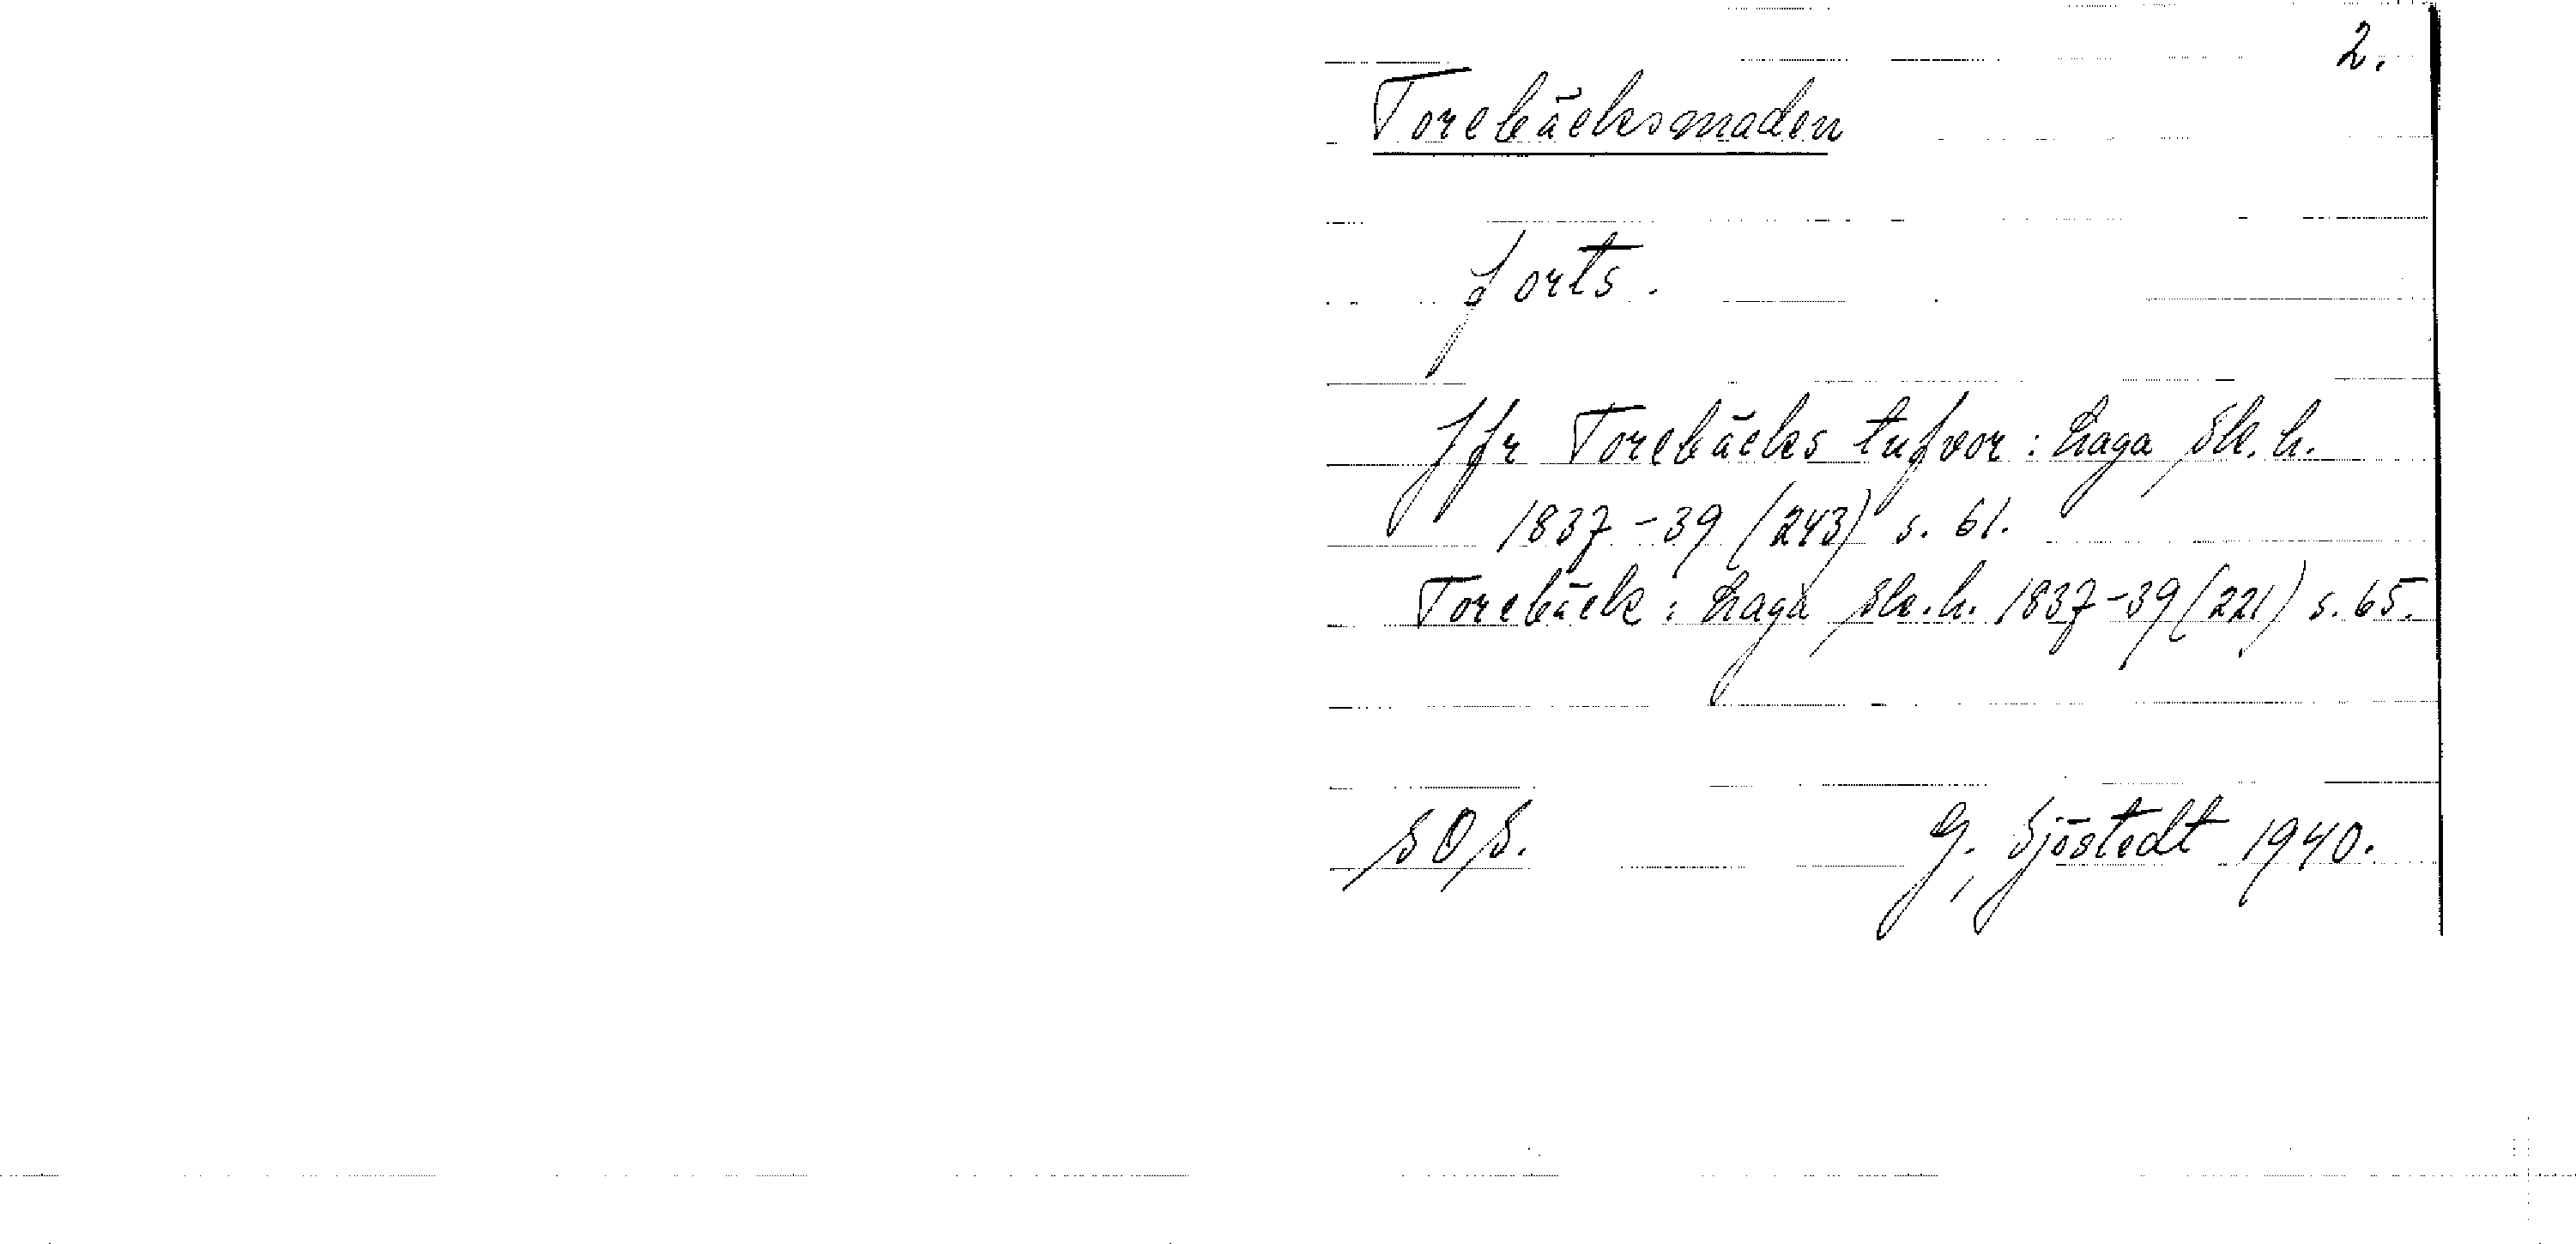 2.
Torebäcksmaden
forts.
Jfr Torebäcks tufvor: Laga sk.h.
1837-39 (243) s. 61.
Torebäck: Laga sk.h. 1837-39 (221) s. 65.
SOS. G. Sjöstedt 1940.